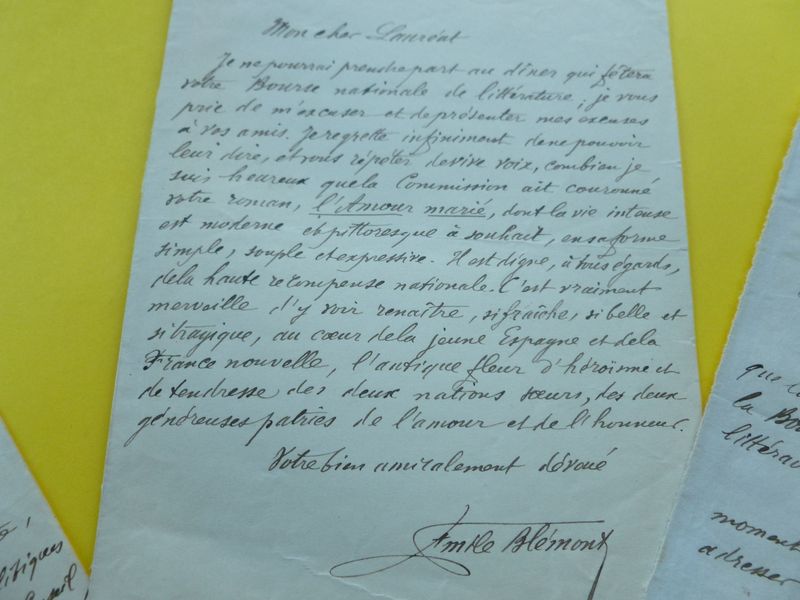 Mon cher Lauréat
Je ne pourrai prendre part au dîner qui fêtera
votre Bourse nationale de littérature ; je vous
prie de m'excuser et de présenter mes excuses
à vos amis. Je regrette infiniment de ne pouvoir
leur dire, et vous répéter de vive voix, combien je
suis heureux que la Commission ait couronné
votre roman, l'Amour marié, dont la vie intense
est moderne et pittoresque à souhait, en sa forme
simple, souple et expressive. Il est digne, à tous égards,
de la haute récompense nationale. C'est vraiment
merveille d'y voir renaître, si fraîche, si belle et
si tragique, au cœur de la jeune Espagne et de la
France nouvelle, l'antique fleur d'héroïsme et
de tendresse des deux nations sœurs, des deux
généreuses patries de l'amour et de l'honneur.
Votre bien amicalement dévoué
Emile Blémont
la Bou
littérau
moment
adresser